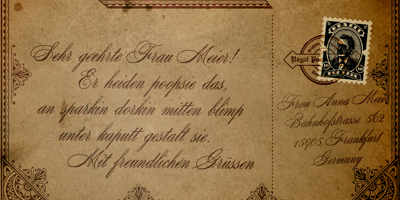 Sehr geehrte Frau Meier!
Er heiden poopsie das,
an sparkin dorkin mitten blimp
unter kaputt gestalt sie.
Mit freundlichen Grüssen
Royal
Frau Anna Meier
Bahnhofstrasse 562
15905 Frankfurt
Germany